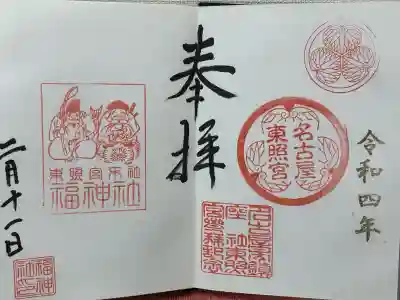 令和四年
名古屋
東照宮
奉拝
東照宮末社
福神社
二月十一日
福神
社印